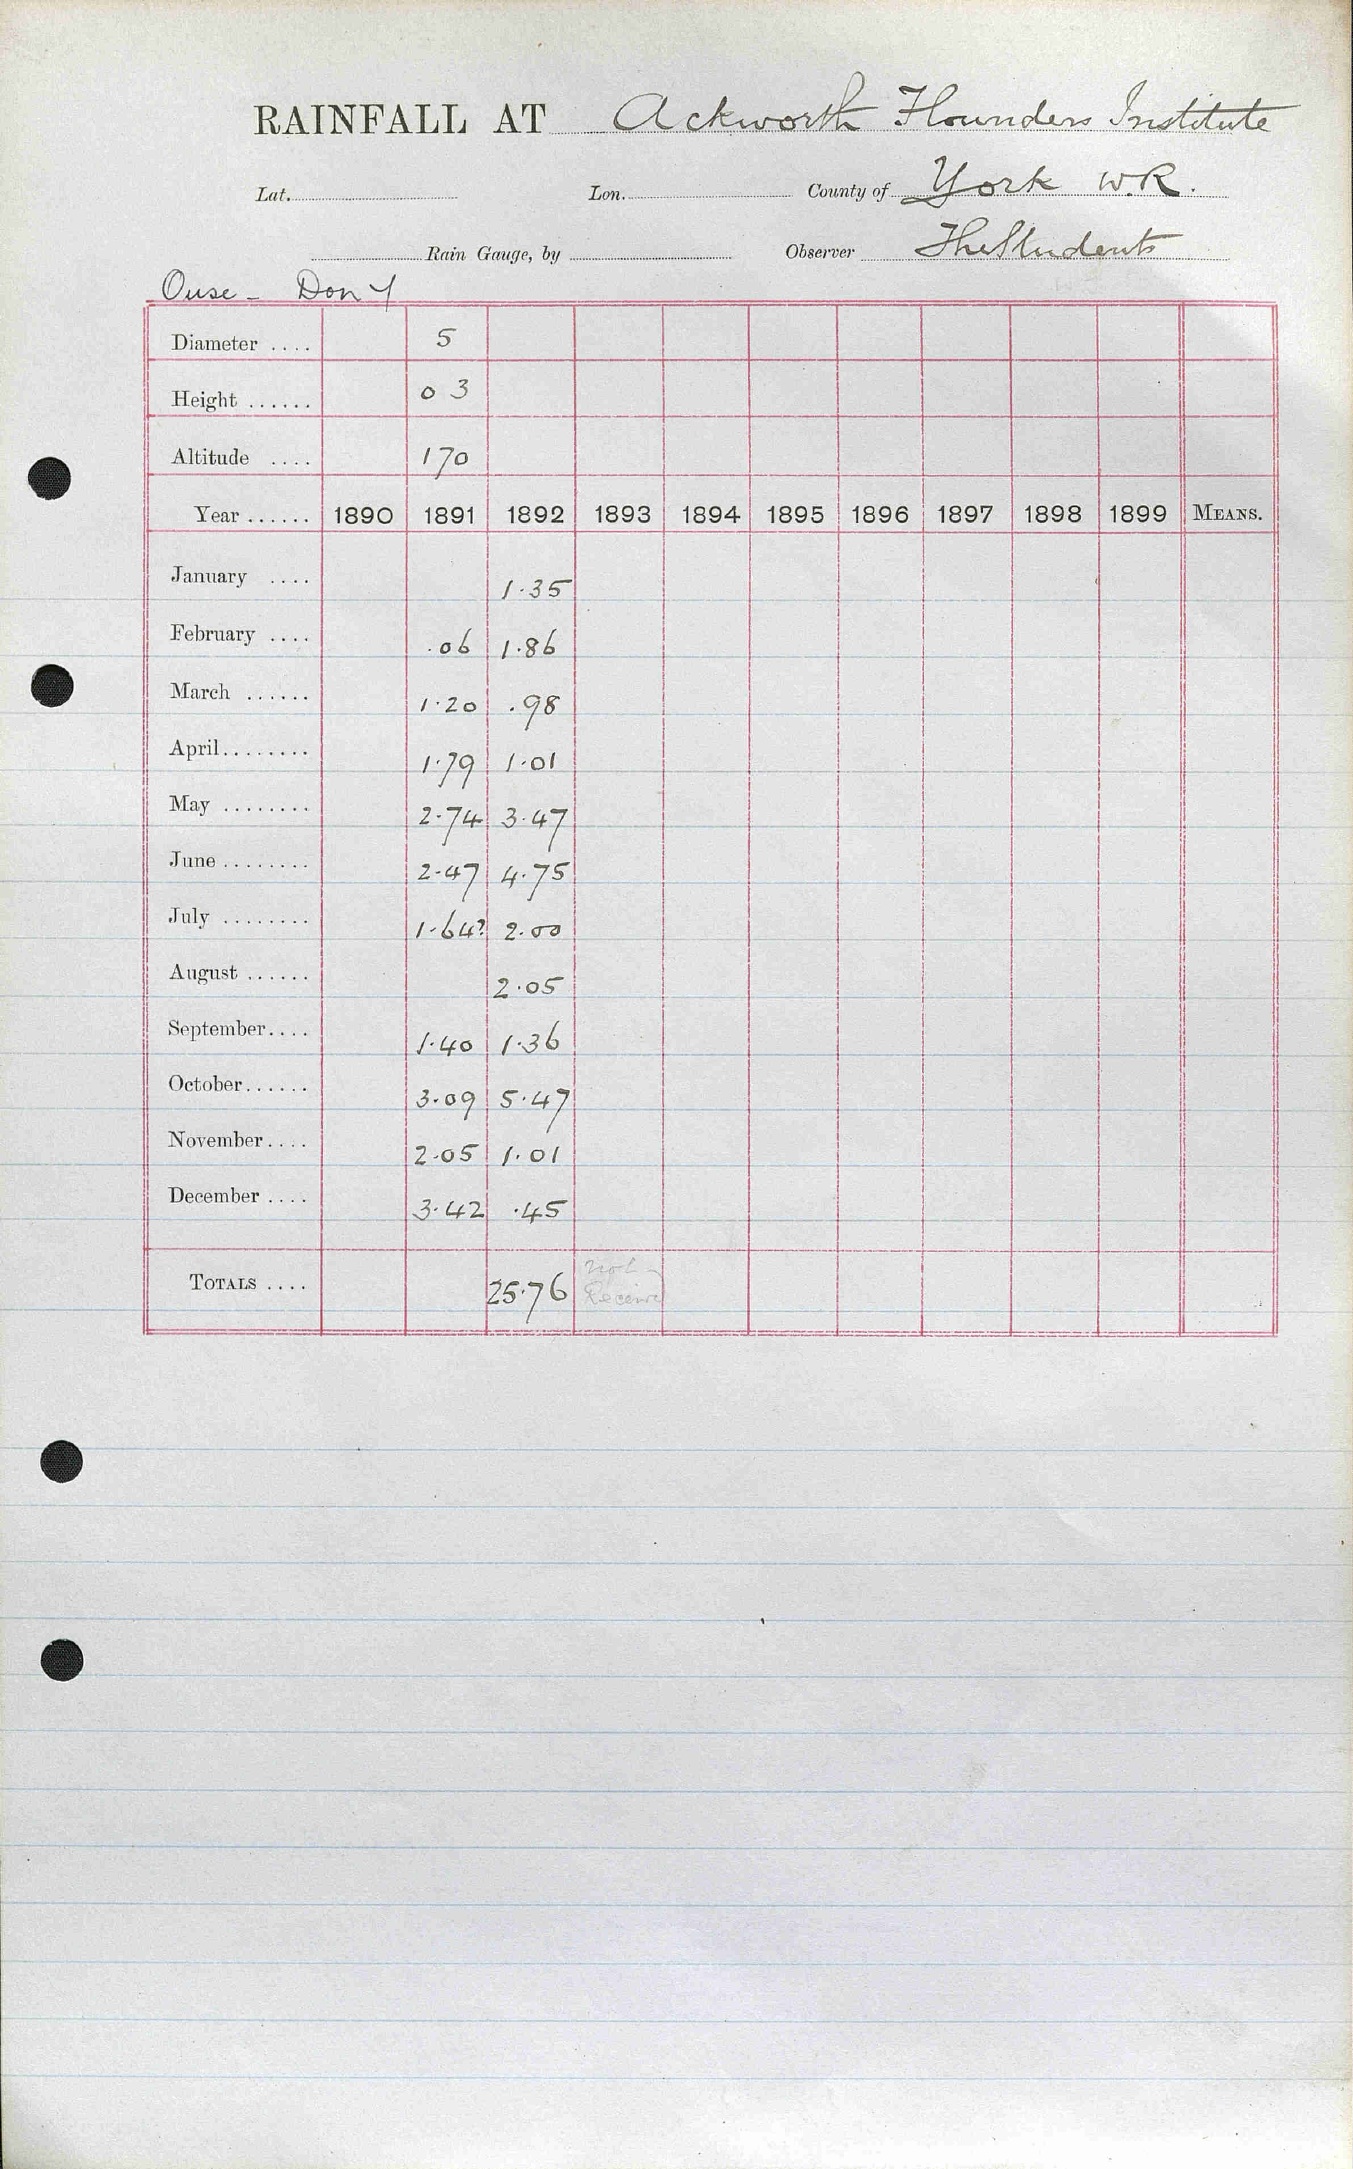 RAINFALL AT Ackworth Flounders Institute
Lat. Lon. County of York W.R.
Rain Gauge, by Observer The Students
Ouse - Don
Diameter .... 5
Height ...... 0 3
Altitude .... 170
Year ...... 1890 1891 1892 1893 1894 1895 1896 1897 1898 1899 MEANS.
January .... 1.35
February .... .06 1.86
March ...... 1.20 .98
April........ 1.79 1.01
May ........ 2.74 3.47
June ........ 2.47 4.75
July ........ 1.64? 2.00
August ...... 2.05
September.... 1.40 1.36
October...... 3.09 5.47
November.... 2.05 1.01
December .... 3.42 .45
Not
TOTALS .... 25.76 Received